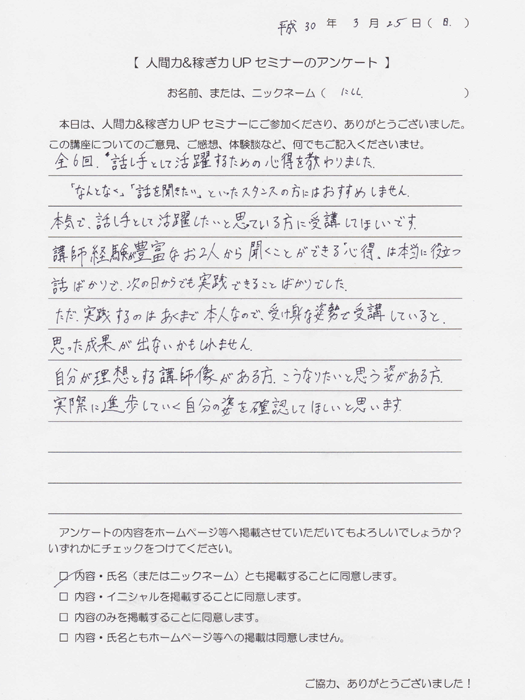 平成 30 年 3 月 25 日（日）
【 人間力&稼ぎ力 UP セミナーのアンケート 】
お名前、または、ニックネーム（ にしし ）
本日は、人間力&稼ぎ力 UP セミナーにご参加くださり、ありがとうございました。
この講座についてのご意見、ご感想、体験談など、何でもご記入くださいませ。
全6回、"話し手として活躍するための心得を教わりました。
「なんとなく」「話を聞きたい」といったスタンスの方にはおすすめしません。
本気で、話し手として活躍したいと思っている方に受講してほしいです。
講師経験が豊富なお2人から聞くことができる「心得」は本当に役立つ
話ばかりで、次の日からでも実践できることばかりでした。
ただ、実践するのはあくまで本人なので、受け身な姿勢で受講していると、
思った成果が出ないかもしれません。
自分が理想とする講師像がある方、こうなりたいと思う姿がある方、
実際に進歩していく自分の姿を確認してほしいと思います。
アンケートの内容をホームページ等へ掲載させていただいてもよろしいでしょうか？
いずれかにチェックをつけてください。
☐ 内容・氏名（またはニックネーム）とも掲載することに同意します。
☐ 内容・イニシャルを掲載することに同意します。
☐ 内容のみを掲載することに同意します。
☐ 内容・氏名ともホームページ等への掲載は同意しません。
ご協力、ありがとうございました！